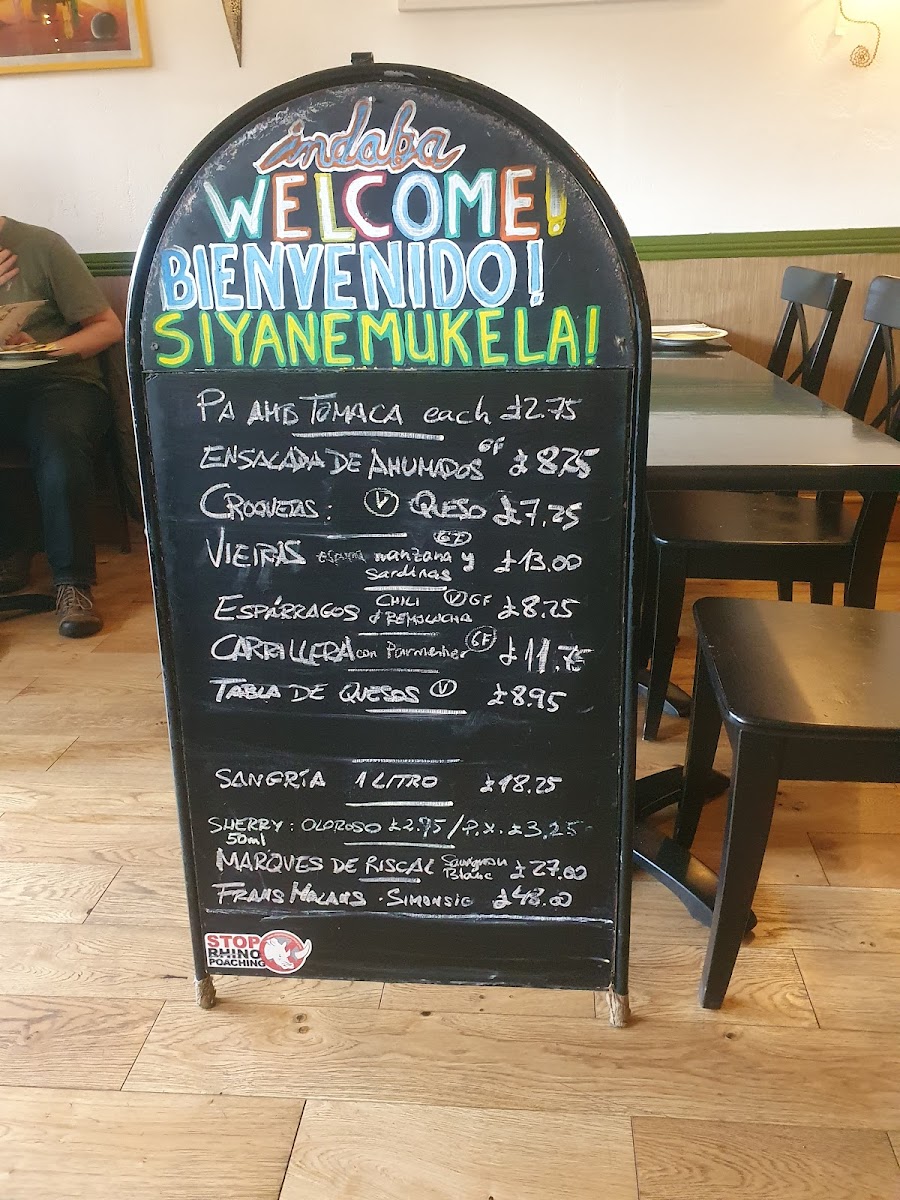 indaba
WELCOME!
BIENVENIDO!
SIYANEMUKELA!
PA AMB TOMACA each £2.75
ENSALADA DE AHUMADOS GF £8.25
CROQUETAS: V QUESO £7.25
VIEIRAS manzana y GF £13.00
sardinas
ESPÁRRAGOS CHILI V GF £8.25
& REMOLACHA
CARRILLERA con Parmentier GF £11.75
TABLA DE QUESOS V £8.95
SANGRÍA 1 LITRO £18.25
SHERRY: OLOROSO £2.95 / P.X. £3.25
50ml
MARQUES DE RISCAL Sauvignon Blanc £27.00
FRANS MALANS · SIMONSIG £48.00
STOP
RHINO
POACHING